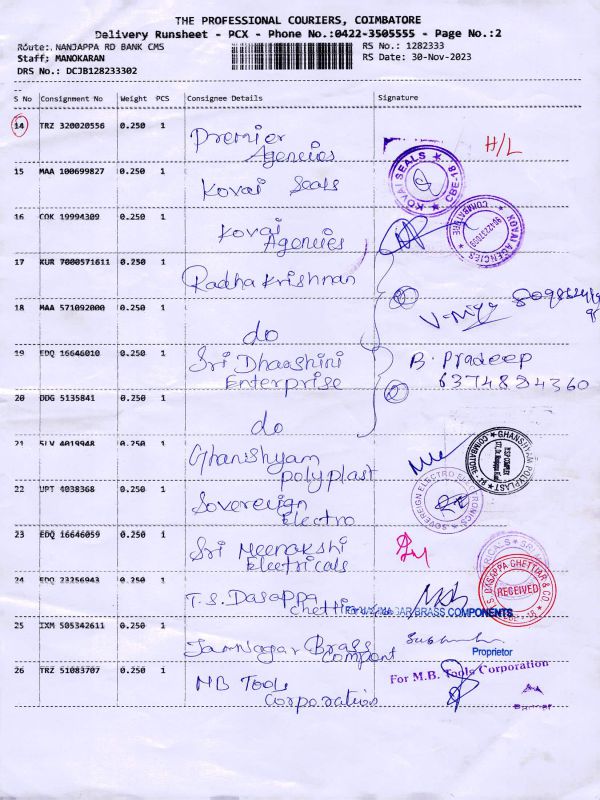 THE PROFESSIONAL COURIERS, COIMBATORE
Delivery Runsheet - PCX - Phone No.:0422-3505555 - Page No.:2
Route: NANJAPPA RD BANK CMS
RS No.: 1282333
Staff: MANOKARAN
RS Date: 30-Nov-2023
DRS No.: DCJB128233302
S No Consignment No Weight PCS Consignee Details Signature
14 TRZ 320020556 0.250 1 Premier Agencies H/L
15 MAA 100699827 0.250 1 Kovai Seals
KOVAI SEALS ★ CBE-18 ★
16 COK 19994309 0.250 1 Kovai Agencies
KOVAI AGENCIES ★ COIMBATORE ★
17 KUR 7000571611 0.250 1 Radha Krishnan
②
18 MAA 571092000 0.250 1 do
19 EDQ 16646010 0.250 1 Sri Dhaashini Enterprise
B. Pradeep
6374884360
②
20 DDG 5135841 0.250 1 do
21 SLV 4019948 0.250 1 Ghanshyam polyplast
GHANSHYAM POLYPLAST ★ COIMBATORE
22 UPT 4038368 0.250 1 Sovereign Electro
SOVEREIGN ELECTRO ELECTRONICS
23 EDQ 16646059 0.250 1 Sri Meenakshi Electricals
24 EDQ 23256943 0.250 1 T.S. Dasappa Chettiar
T.S. DASAPPA CHETTIAR & CO.
RECEIVED
BRASS COMPONENTS
25 IXM 505342611 0.250 1 Jamnagar Brass Compont
Proprietor
26 TRZ 51083707 0.250 1 MB Tools Corporation
For M.B. Tools Corporation